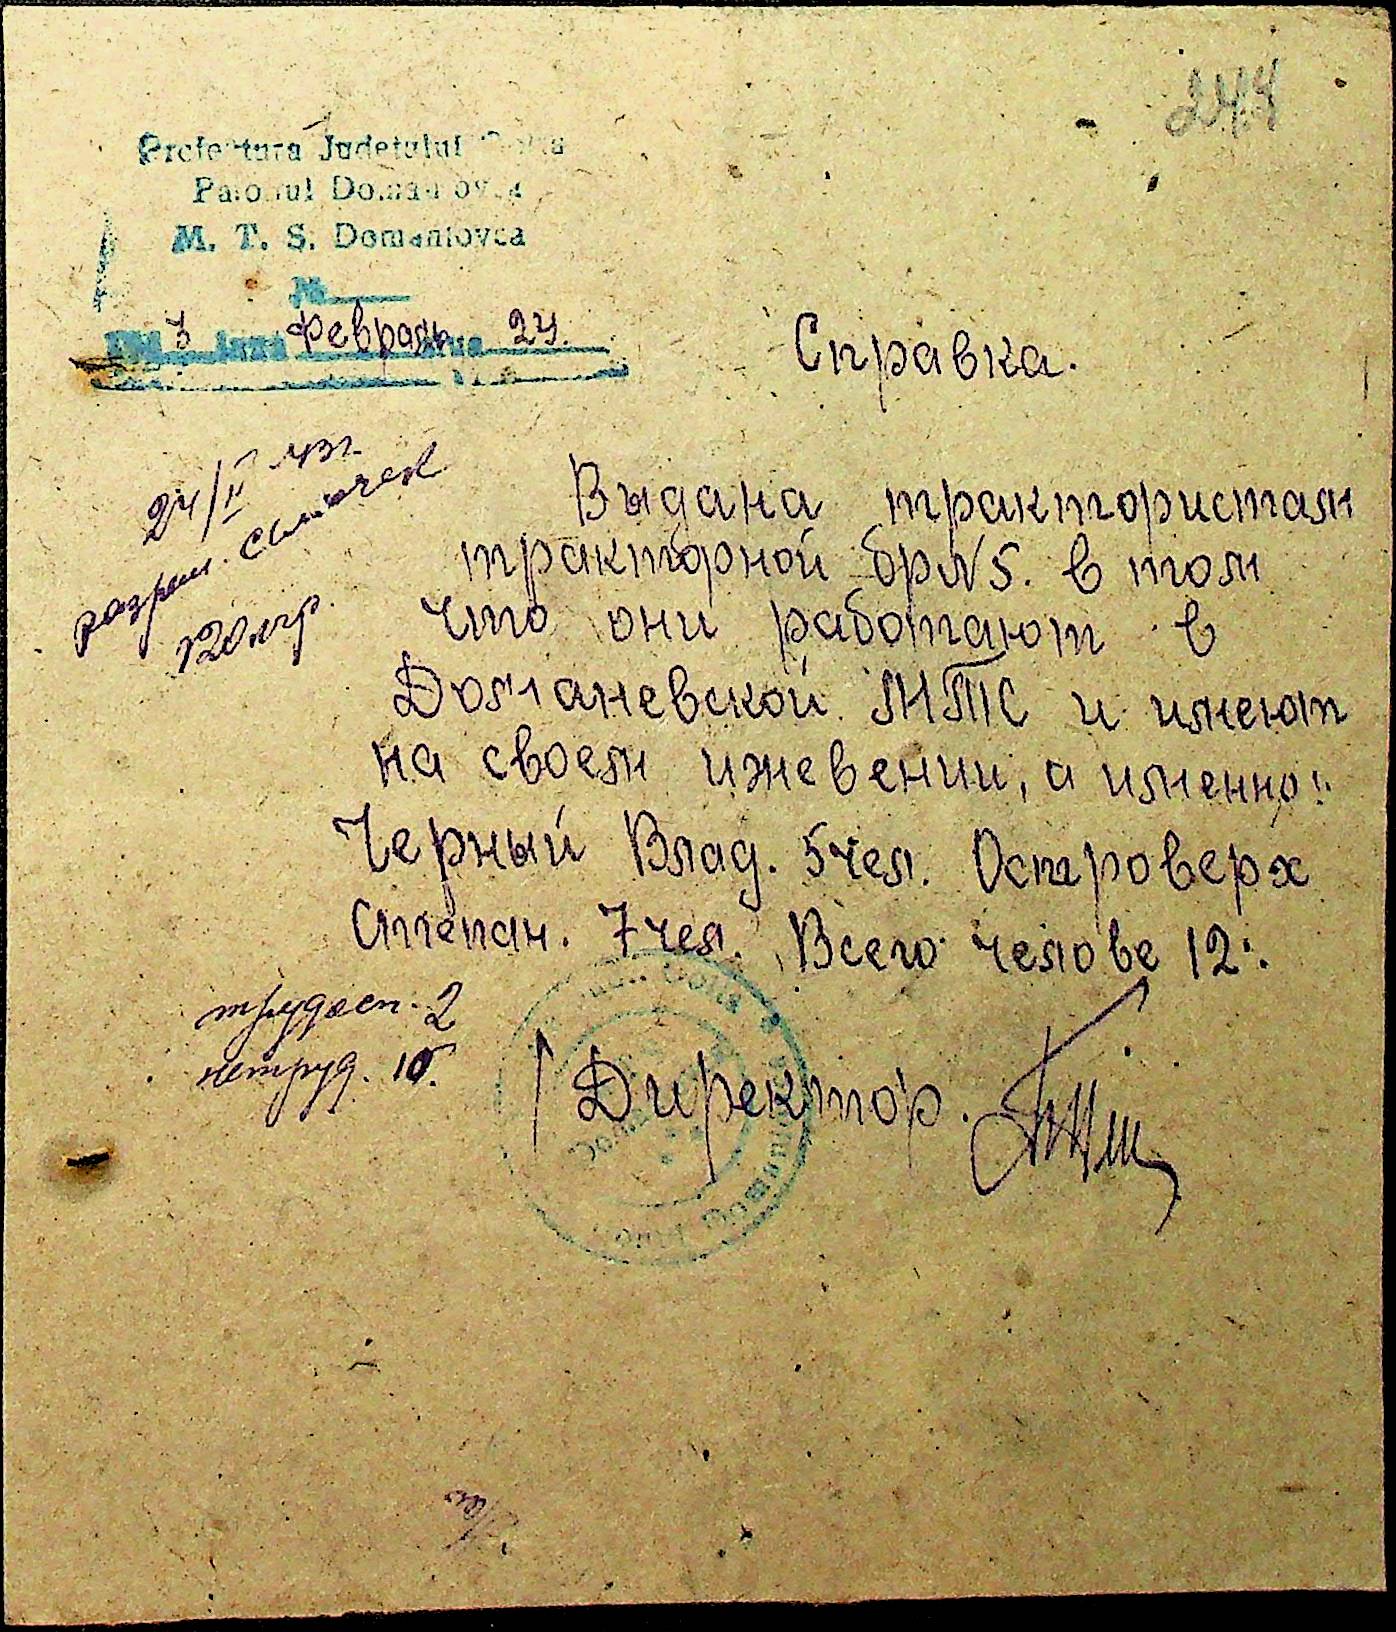 244
Prefectura Judetului Golta
Raionul Domaniovca
M. T. S. Domaniovca
№
3 февраль 24.
Справка.
24/II 43г.
разреш.
120кгр.
Выдана трактористам
тракторной бр №5. в том
что они работают в
Доманевской МТС и имеют
на своем ижевении, а именно:
Черный Влад. 5 чел. Островерх
Степан. 7 чел. Всего челове 12.
трудосп. 2
нетруд. 10.
Директор.